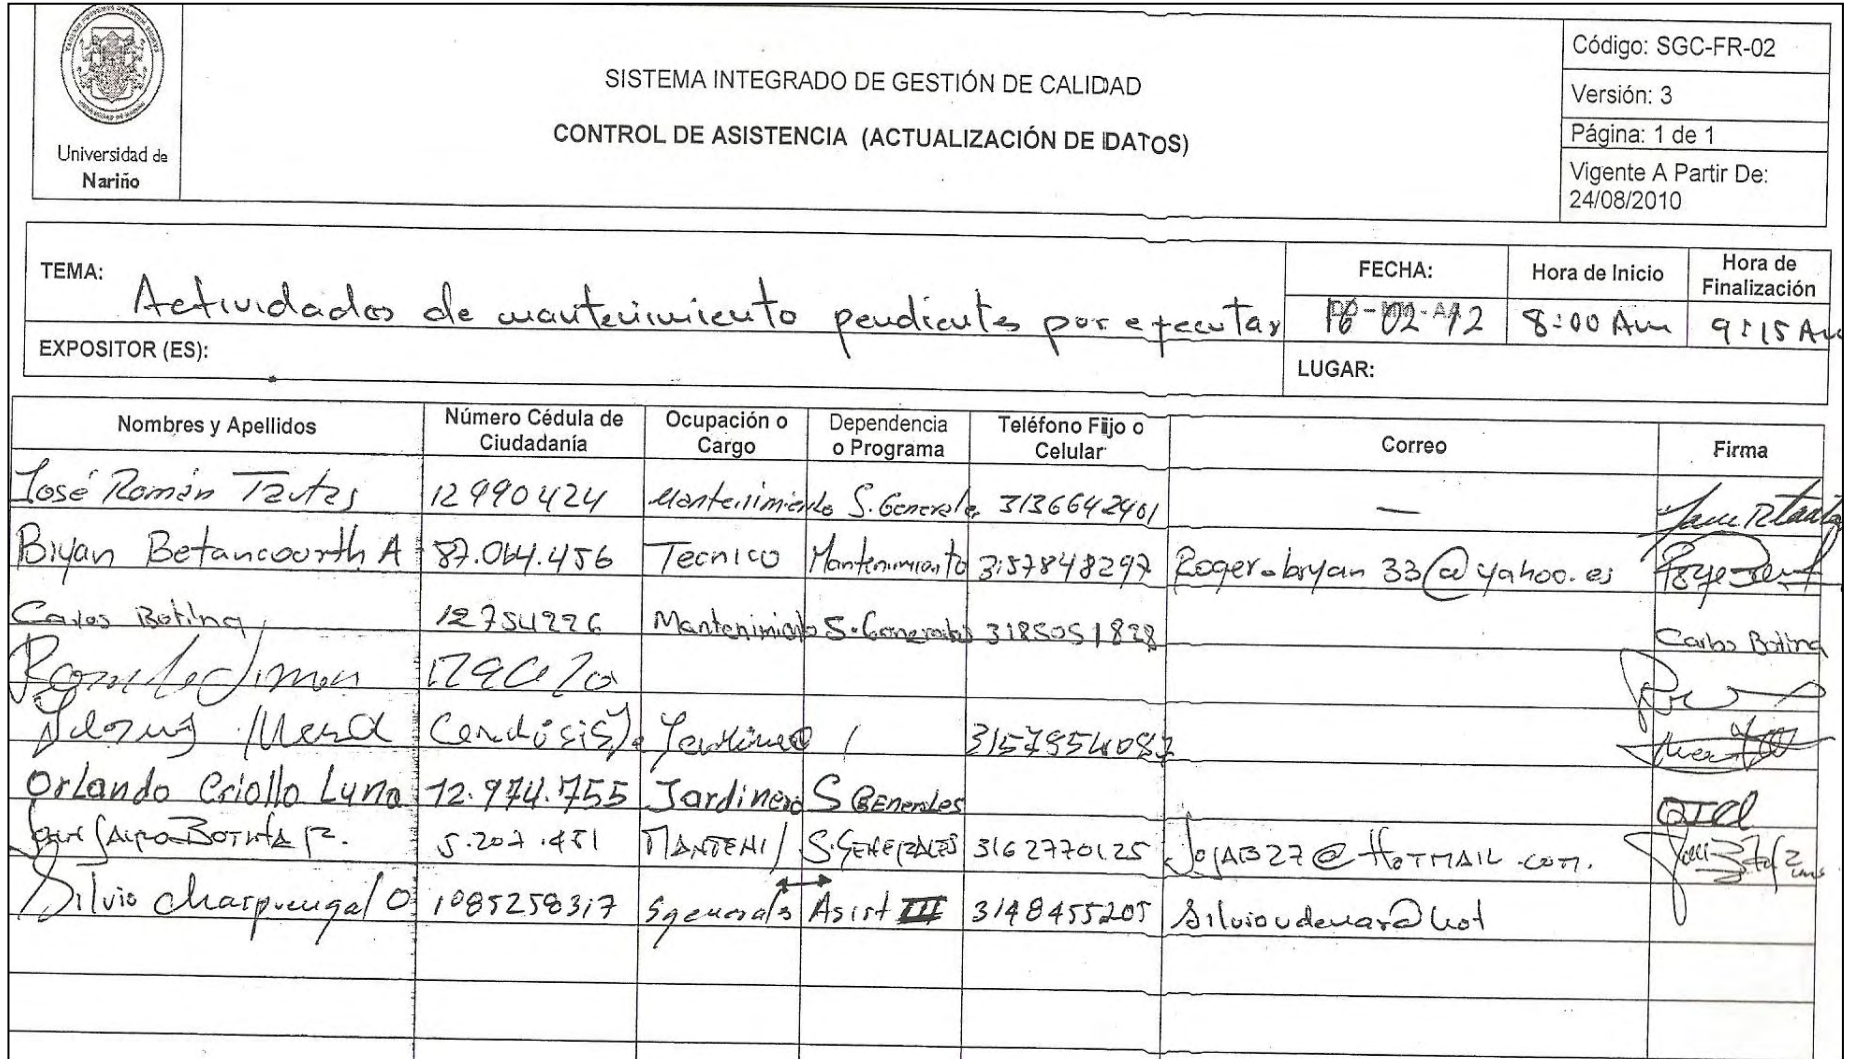 Código: SGC-FR-02
SISTEMA INTEGRADO DE GESTIÓN DE CALIDAD
Versión: 3
CONTROL DE ASISTENCIA (ACTUALIZACIÓN DE DATOS)
Página: 1 de 1
Universidad de
Nariño
Vigente A Partir De:
24/08/2010
TEMA: Actividades de mantenimiento pendientes por ejecutar
FECHA: Hora de Inicio Hora de Finalización
8:00 Am 9:15 Am
EXPOSITOR (ES):
LUGAR:
Nombres y Apellidos Número Cédula de Ciudadanía Ocupación o Cargo Dependencia o Programa Teléfono Fijo o Celular Correo Firma
José Román 12990424 Mantenimiento S. Generales 3136642401 —
Bryan Betancourth A 87.064.456 Tecnico Mantenimiento 3157848297 Roger-bryan 33@yahoo.es
Carlos Botina 12754226 Mantenimiento S. Generales 3185051828 Carlos Botina
Mena
Orlando Criollo Luna 12.974.755 Jardinero S Generales
Botina 5.207.451 MANTENI/ S. GENERALES 3162770125 JOJAB27@HOTMAIL.COM.
Silvio 1085258317 Sgenerales Asist III 3148455205 Silvioudenar@hot